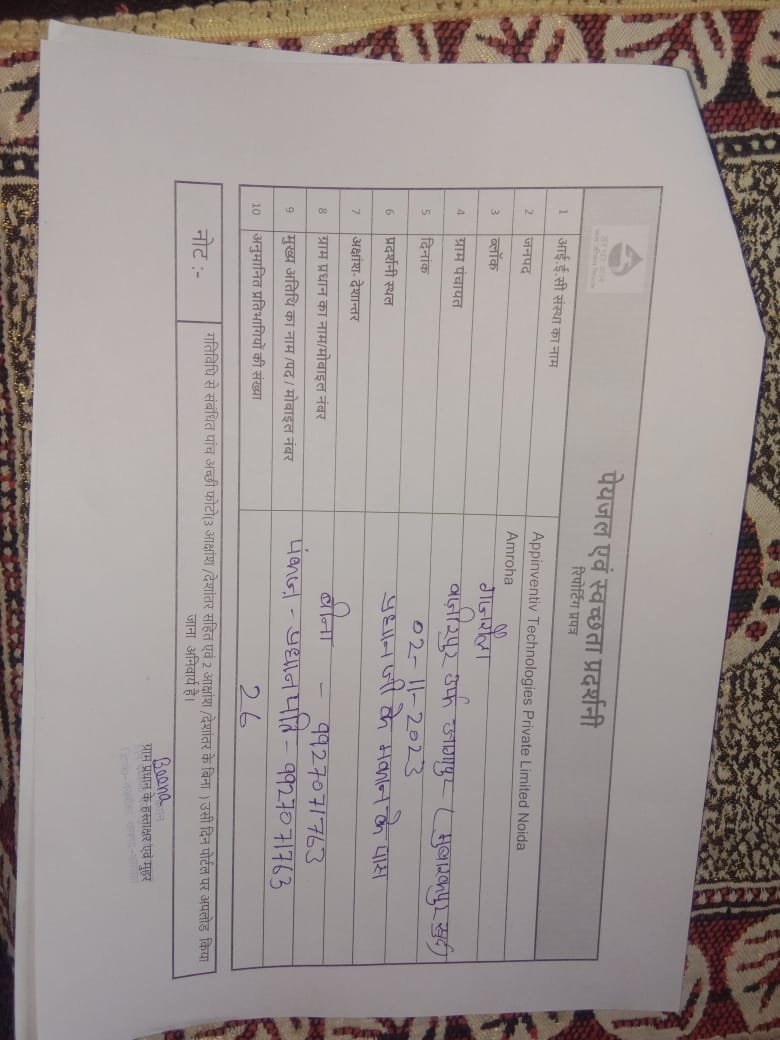 पेयजल एवं स्वच्छता प्रदर्शनी
रिपोर्टिंग प्रपत्र
1 आई.ई.सी संस्था का नाम Appinventiv Technologies Private Limited Noida
2 जनपद Amroha
3 ब्लॉक गजरौला
4 ग्राम पंचायत उर्फ (मुबारकपुर
5 दिनांक ०2-11-2023
6 प्रदर्शनी स्थल प्रधान जी के मकान के पास
7 अक्षांश- देशान्तर
8 ग्राम प्रधान का नाम/मोबाइल नंबर बीना - ९९27०71763
9 मुख्य अतिथि का नाम /पद / मोबाइल नंबर पंकज - प्रधान पति - ९९27०71763
10 अनुमानित प्रतिभागियों की संख्या 26
नोट :- गतिविधि से संबंधित पांच अच्छी फोटो(3 आक्षांश /देशांतर सहित एवं 2 आक्षांश /देशांतर के बिना ) उसी दिन पोर्टल पर अपलोड किया
जाना अनिवार्य है।
Beena
ग्राम प्रधान के हस्ताक्षर एवं मुहर